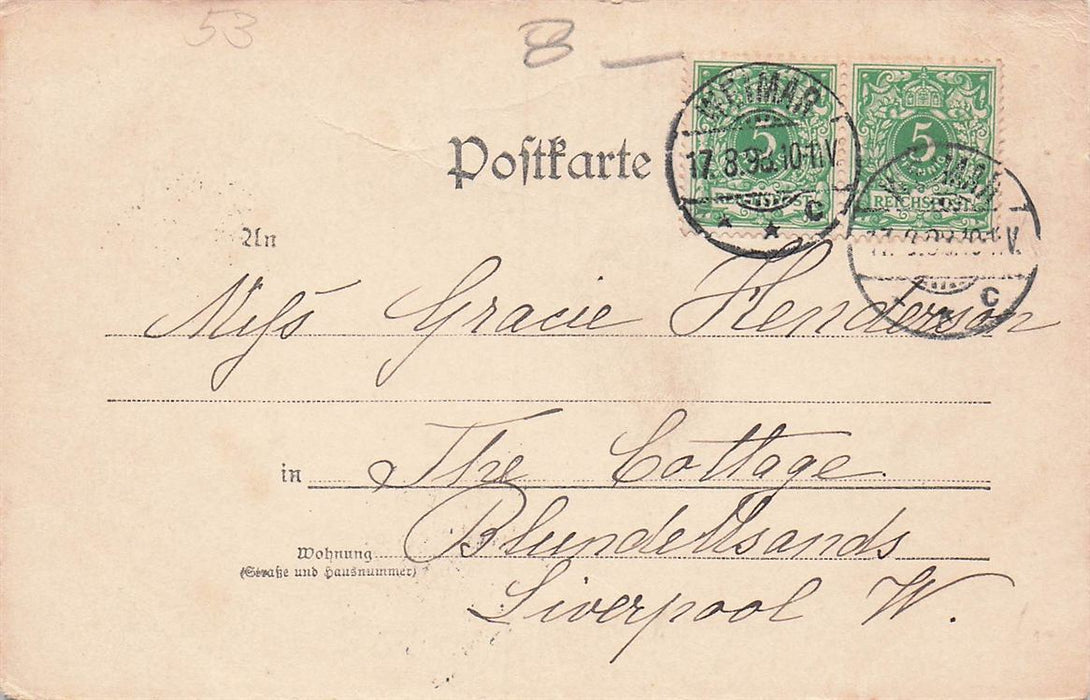 53
8 —
Postkarte
WEIMAR
17.8.98.10-11.V.
★ ★ c
5
5
REICHSPOST
c
An
Miss Gracie Henderson
in The Cottage
Blundellsands
Wohnung
(Straße und Hausnummer)
Liverpool W.